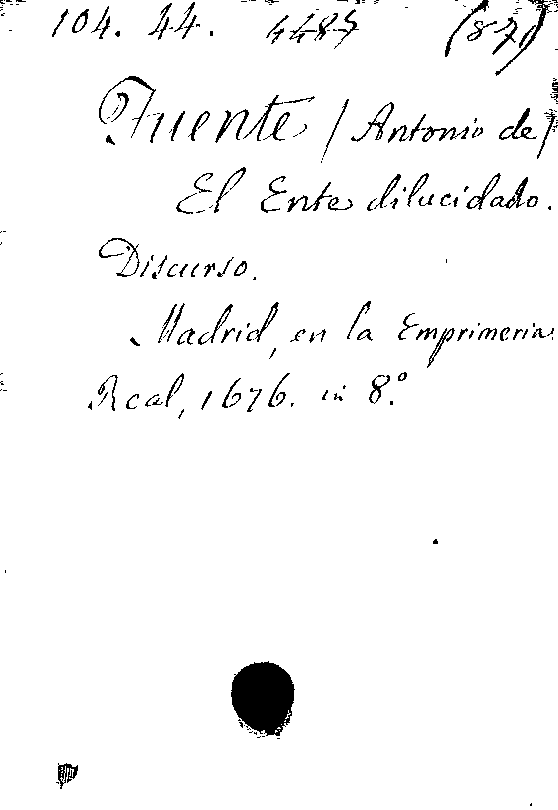 104. 44. 4487 (87)
Fuente / Antonio de /
El Ente dilucidado.
Discurso.
Madrid, en la Emprimeria
Real, 1676. in 8.º